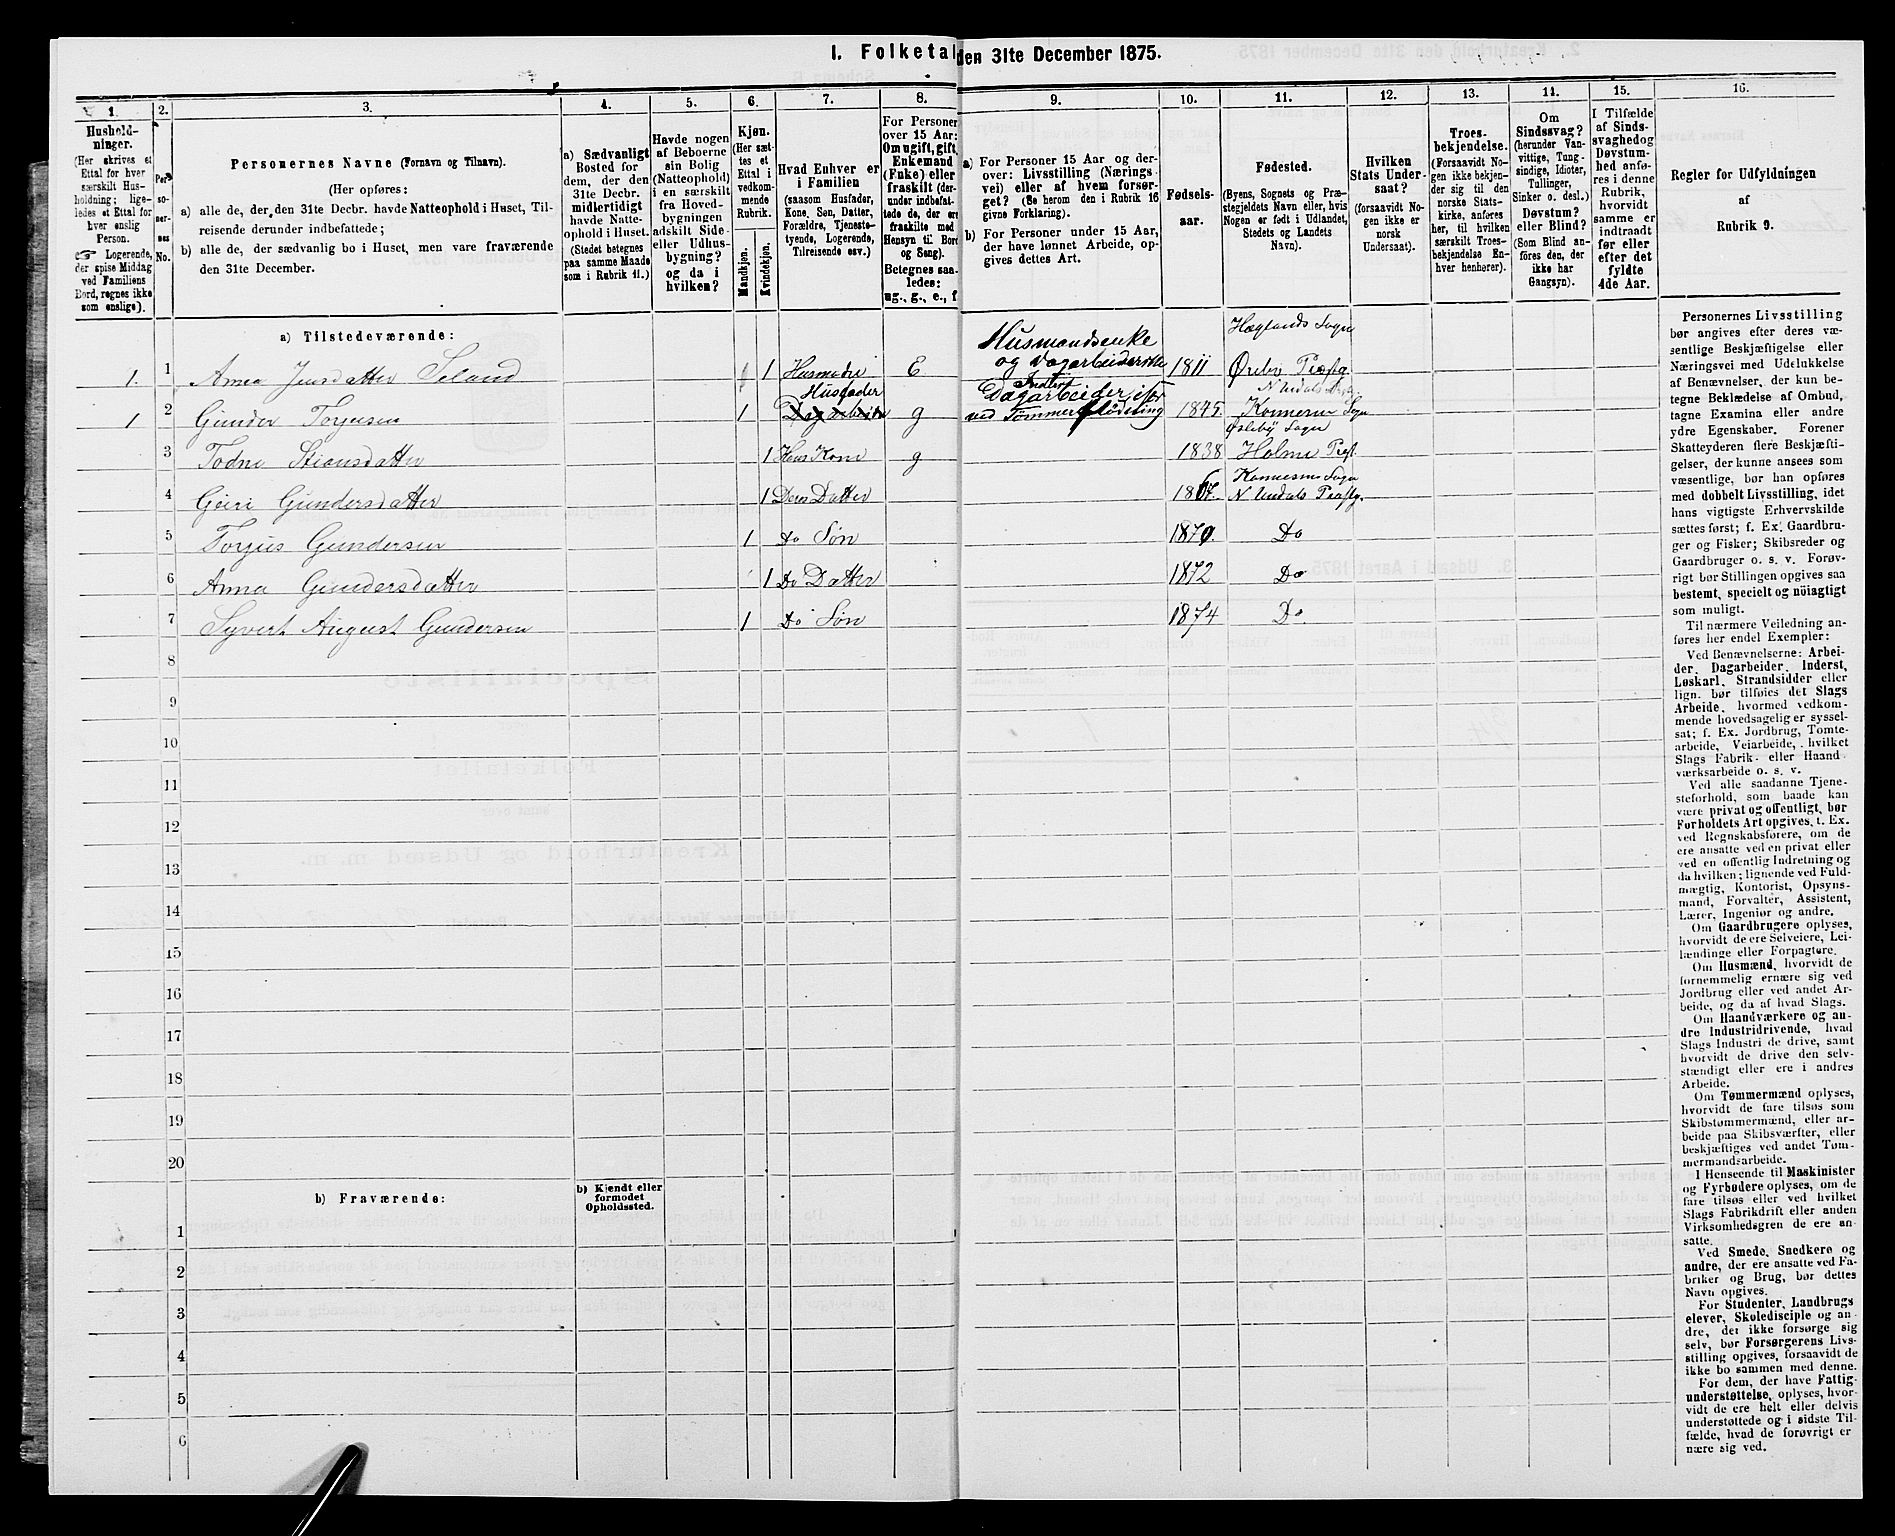 I. Folketal den 31te December 1875.
1.
2.
3.
4.
5.
6.
7.
8.
9.
10.
11.
12.
13.
14.
15.
16.
Hushold-
ninger.
(Her skrives et
Ettal for hver
særskilt Hus-
holdning; lige-
ledes et Ettal for
hver enslig
Person.
☞ Logerende,
der spise Middag
ved Familiens
Bord, regnes ikke
som enslige).
Per-
so-
ner-
nes
No.
Personernes Navne (Fornavn og Tilnavn).
(Her opføres:
a) alle de, der den 31te Decbr. havde Natteophold i Huset, Til-
reisende derunder indbefattede;
b) alle de, der sædvanlig bo i Huset, men vare fraværende
den 31te December.
a) Sædvanligt
Bosted for
dem, der den
31te Decbr.
midlertidigt
havde Natte-
ophold i Huset.
(Stedet betegnes
paa samme Maade
som i Rubrik 11.)
Havde nogen
af Beboerne
sin Bolig
(Natteophold)
i en særskilt
fra Hoved-
bygningen
adskilt Side-
eller Udhus-
bygning?
og da i
hvilken?
Kjøn.
(Her sæt-
tes et
Ettal i
vedkom-
mende
Rubrik.
Mandkjøn.
Kvindekjøn.
Hvad Enhver er
i Familien
(saasom Husfader,
Kone, Søn, Datter,
Forældre, Tjeneste-
tyende, Logerende,
Tilreisende osv.)
For Personer
over 15 Aar:
Om ugift, gift,
Enkemand
(Enke) eller
fraskilt (der-
under indbefat-
tede de, der ere
fraskilte med
Hensyn til Bord
og Seng).
Betegnes saa-
ledes:
ug., g., e., f.
a) For Personer 15 Aar og der-
over: Livsstilling (Nærings-
vei) eller af hvem forsør-
get? (Se herom den i Rubrik 16
givne Forklaring).
b) For Personer under 15 Aar,
der have lønnet Arbeide, op-
gives dettes Art.
Fødsels-
aar.
Fødested.
(Byens, Sognets og Præ-
stegjeldets Navn eller, hvis
Nogen er født i Udlandet,
Stedets og Landets
Navn).
Hvilken
Stats Under-
saat?
(forsaavidt No-
gen ikke er
norsk
Undersaat).
Troes-
bekjendelse.
(Forsaavidt No-
gen ikke bekjen-
der sig til den
norske Stats-
kirke, anføres
her, til hvilken
særskilt Troes-
bekjendelse En-
hver henhører).
Om
Sindssvag?
(herunder Van-
vittige, Tung-
sindige, Idioter,
Tullinger,
Sinker o. desl.)
Døvstum?
eller Blind?
(Som Blind an-
føres den, der
ikke har
Gangsyn).
I Tilfælde
af Sinds-
svaghed og
Døvstum-
hed anfø-
res i denne
Rubrik,
hvorvidt
samme er
indtraadt
før eller
efter det
fyldte
4de Aar.
Regler for Udfyldningen
af
Rubrik 9.
a) Tilstedeværende:
1. 1 Anna Jensdatter Seland 1 Husmoder E Husmandsenke og Dagarbeiderske 1811 Høglands Sogn Øvebø Præstg
1 2 Gunder Torjusen 1 Husfader Dagarbeider g Inderst Dagarbeider ved Tømmerflødning 1845. N Undals Konsmo Sogn
3 Todne Stiansdatter 1 Hans Kone g 1838 Øslebø Sogn Holme Præst
4 Geiri Gundersdatter 1 Deres Datter 1867. Konsmo Sogn N. Undals Præstg.
5 Torjus Gundersen 1 Do Søn 1870. Do
6 Anna Gundersdatter 1 Do Datter 1872 Do
7 Syvert August Gundersen 1 Do Søn 1874 Do.
8
9
10
11
12
13
14
15
16
17
18
19
20
b) Fraværende:
b) Kjendt eller
formodet
Opholdssted.
1
2
3
4
5
6
Personernes Livsstilling
bør angives efter deres væ-
sentlige Beskjæftigelse eller
Næringsvei med Udelukkelse
af Benævnelser, der kun be-
tegne Beklædelse af Ombud,
tagne Examina eller andre
ydre Egenskaber. Forener
Skatteyderen flere Beskjæfti-
gelser, der kunne ansees som
væsentlige, bør han opføres
med dobbelt Livsstilling, idet
hans vigtigste Erhvervskilde
sættes først; f. Ex. Gaardbru-
ger og Fisker; Skibsreder og
Gaardbruger o. s. v. Forøv-
rigt bør Stillingen opgives saa
bestemt, specielt og nöiagtigt
som muligt.
Til nærmere Veiledning an-
føres her endel Exempler:
Ved Benævnelserne: Arbei-
der, Dagarbeider, Inderst,
Løskarl, Strandsidder eller
lign. bør tilføies det Slags
Arbeide, hvormed vedkom-
mende hovedsagelig er syssel-
sat; f. Ex. Jordbrug, Tomte-
arbeide, Veiarbeide, hvilket
Slags Fabrik- eller Haand-
værksarbeide o. s. v.
Ved alle saadanne Tjene-
steforhold, som baade kan
være privat og offentligt, bør
Forholdets Art opgives, t. Ex.
ved Regnskabsførere, om de
ere ansatte ved en privat eller
ved en offentlig Indretning og
da hvilken; lignende ved Fuld-
mægtig, Kontorist, Opsyns-
mand, Forvalter, Assistent,
Lærer, Ingeniør og andre.
Om Gaardbrugere oplyses,
hvorvidt de ere Selveiere, Lei-
lændinge eller Forpagtere.
Om Husmænd, hvorvidt de
fornemmelig ernære sig ved
Jordbrug eller ved andet Ar-
beide, og da af hvad Slags.
Om Haandværkere og an-
dre Industridrivende, hvad
Slags Industri de drive, samt
hvorvidt de drive den selv-
stændigt eller ere i andres
Arbeide.
Om Tømmermænd oplyses,
hvorvidt de fare tilsøs som
Skibstømmermænd, eller ar-
beide paa Skibsværfter, eller
beskjæftiges ved andet Tøm-
mermandsarbeide.
I Henseende til Maskinister
og Fyrbødere oplyses, om de
fare tilsøs eller ved hvilket
Slags Fabrikdrift eller anden
Virksomhedsgren de ere an-
satte.
Ved Smede, Snedkere og
andre, der ere ansatte ved Fa-
briker og Brug, bør dettes
Navn opgives.
For Studenter, Landbrugs-
elever, Skoledisciple og an-
dre, der ikke forsørge sig
selv, bør Forsørgerens Livs-
stilling opgives, forsaavidt de
ikke bo sammen med denne.
For dem, der have Fattig-
understøttelse, oplyses, hvor-
vidt de ere helt eller delvis
understøttede og i sidste Til-
fælde, hvad de forøvrigt er-
nære sig ved.